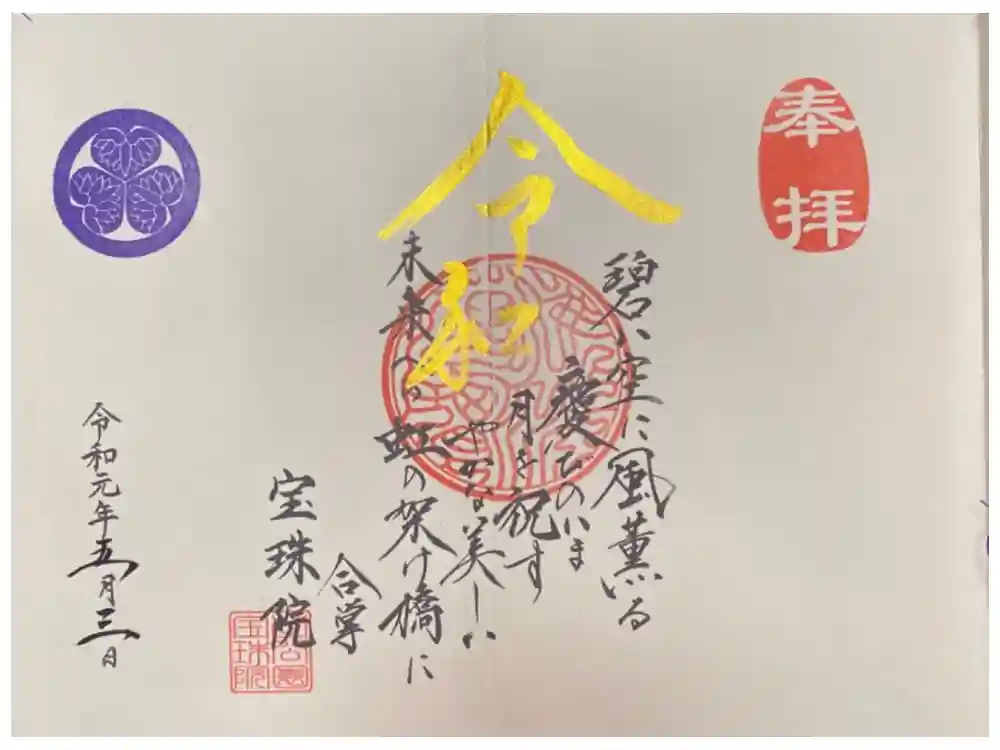 奉拝
令和
碧い空に風薫る
慶びのいま
月を祝す
やかな美しい
未来へ。虹の架け橋に
合掌
宝珠院
令和元年五月三日